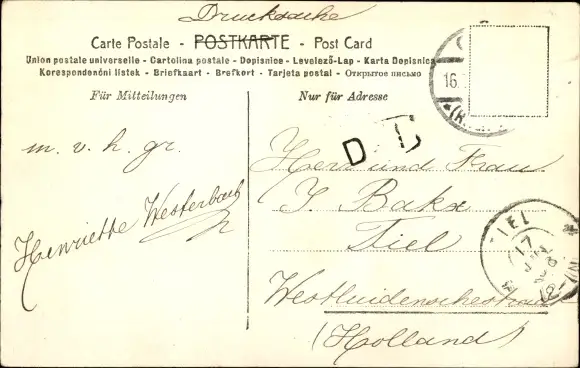 Drucksache
Carte Postale - POSTKARTE - Post Card
Union postale universelle - Cartolina postale - Dopisnice - Levelező-Lap - Karta Dopisnica
Korespondenóni listek - Briefkaart - Brefkort - Tarjeta postal - Открытое письмо
Für Mitteilungen
Nur für Adresse
16.
D D
m. v. h. gr.
Henriette Westerbach
Herr und Frau
J. Bakx
Tiel
Westluidenschestraat
(Holland)
TIEL
17